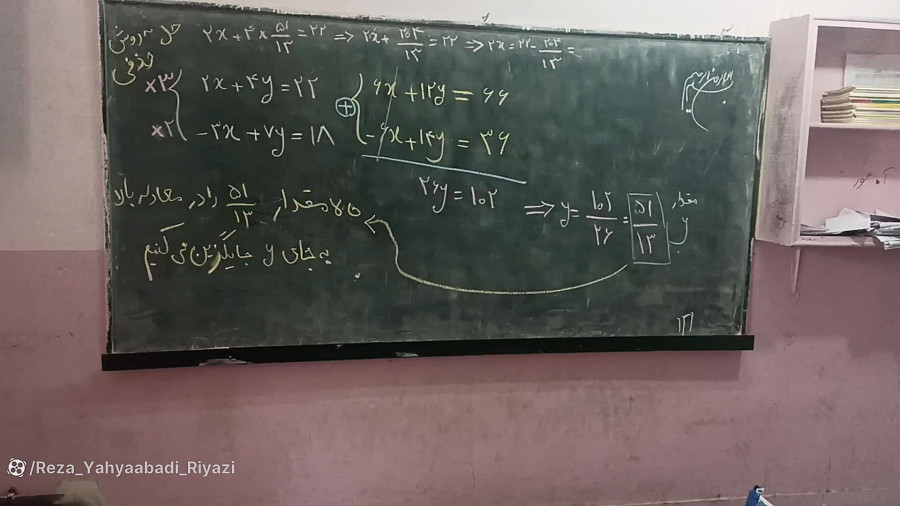 حل به روش
حذفی
۲x+۴×۵۱/۱۳=۲۲ ⇒ ۲x+۲۰۴/۱۳=۲۲ ⇒ ۲x=۲۲-۲۰۴/۱۳=
×۳ { ۲x+۴y=۲۲
×۲ { -۳x+۷y=۱۸
⊕ { ۶x+۱۲y=۶۶
-۶x+۱۴y=۳۶
۲۶y=۱۰۲ ⇒ y=۱۰۲/۲۶=۵۱/۱۳
مقدار
y
حالا مقدار ۵۱/۱۳ را در معادله بالا
به جای y جایگزین می کنیم
/Reza_Yahyaabadi_Riyazi